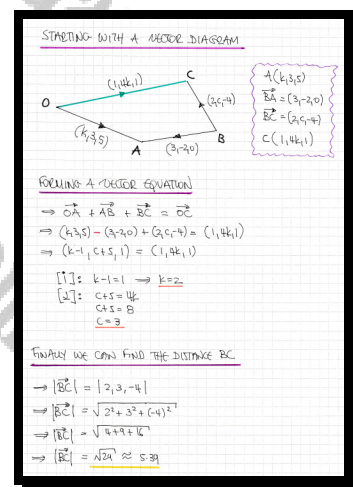 STARTING WITH A VECTOR DIAGRAM
C
(1,4k,1)
A(k,3,5)
O
BA = (3,-2,0)
(2,c,-4)
BC = (2,c,-4)
(k,3,5)
B
C(1,4k,1)
A
(3,-2,0)
FORMING A VECTOR EQUATION
⇒ OA + AB + BC = OC
⇒ (k,3,5) - (3,-2,0) + (2,c,-4) = (1,4k,1)
⇒ (k-1, c+5, 1) = (1,4k,1)
[i]: k-1=1 ⇒ k=2
[j]: c+5 = 4k
c+5 = 8
c = 3
FINALLY WE CAN FIND THE DISTANCE BC
⇒ |BC| = |2,3,-4|
⇒ |BC| = √(2²+3²+(-4)²)
⇒ |BC| = √(4+9+16)
⇒ |BC| = √29 ≈ 5.39